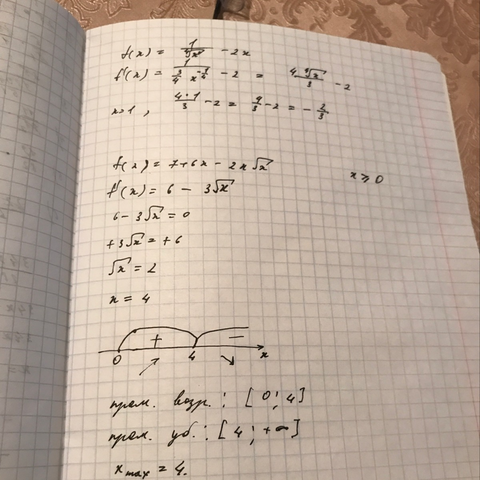 f(x) = 1/∜x³ - 2x
f'(x) = 1/(3/4 x^(-1/4)) - 2 = 4∜x/3 - 2
x=1, 4·1/3 - 2 = 4/3 - 2 = - 2/3
f(x) = 7+6x - 2x√x x ⩾ 0
f'(x) = 6 - 3√x
6 - 3√x = 0
+3√x = +6
√x = 2
x = 4
+ -
0 4 x
пром. возр.: [0; 4]
пром. уб.: [4; +∞]
x max = 4.